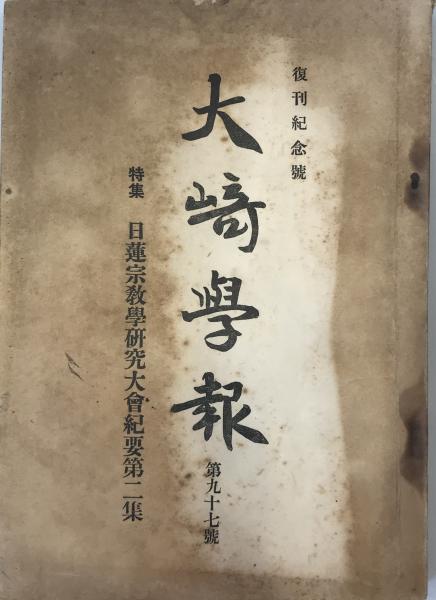 復刊紀念號
大﨑學報
第九十七號
特集 日蓮宗敎學硏究大會紀要第二集